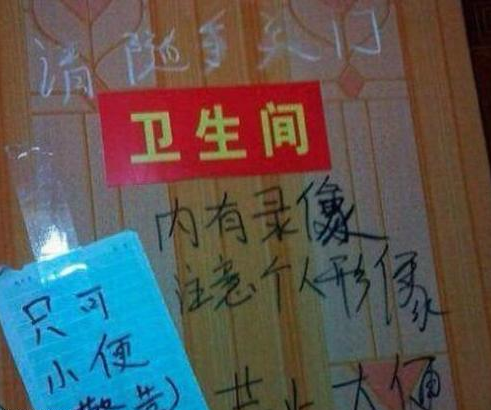 请随手关门
卫生间
内有录像
注意个人形像
只可
小便
警告)
禁止大便